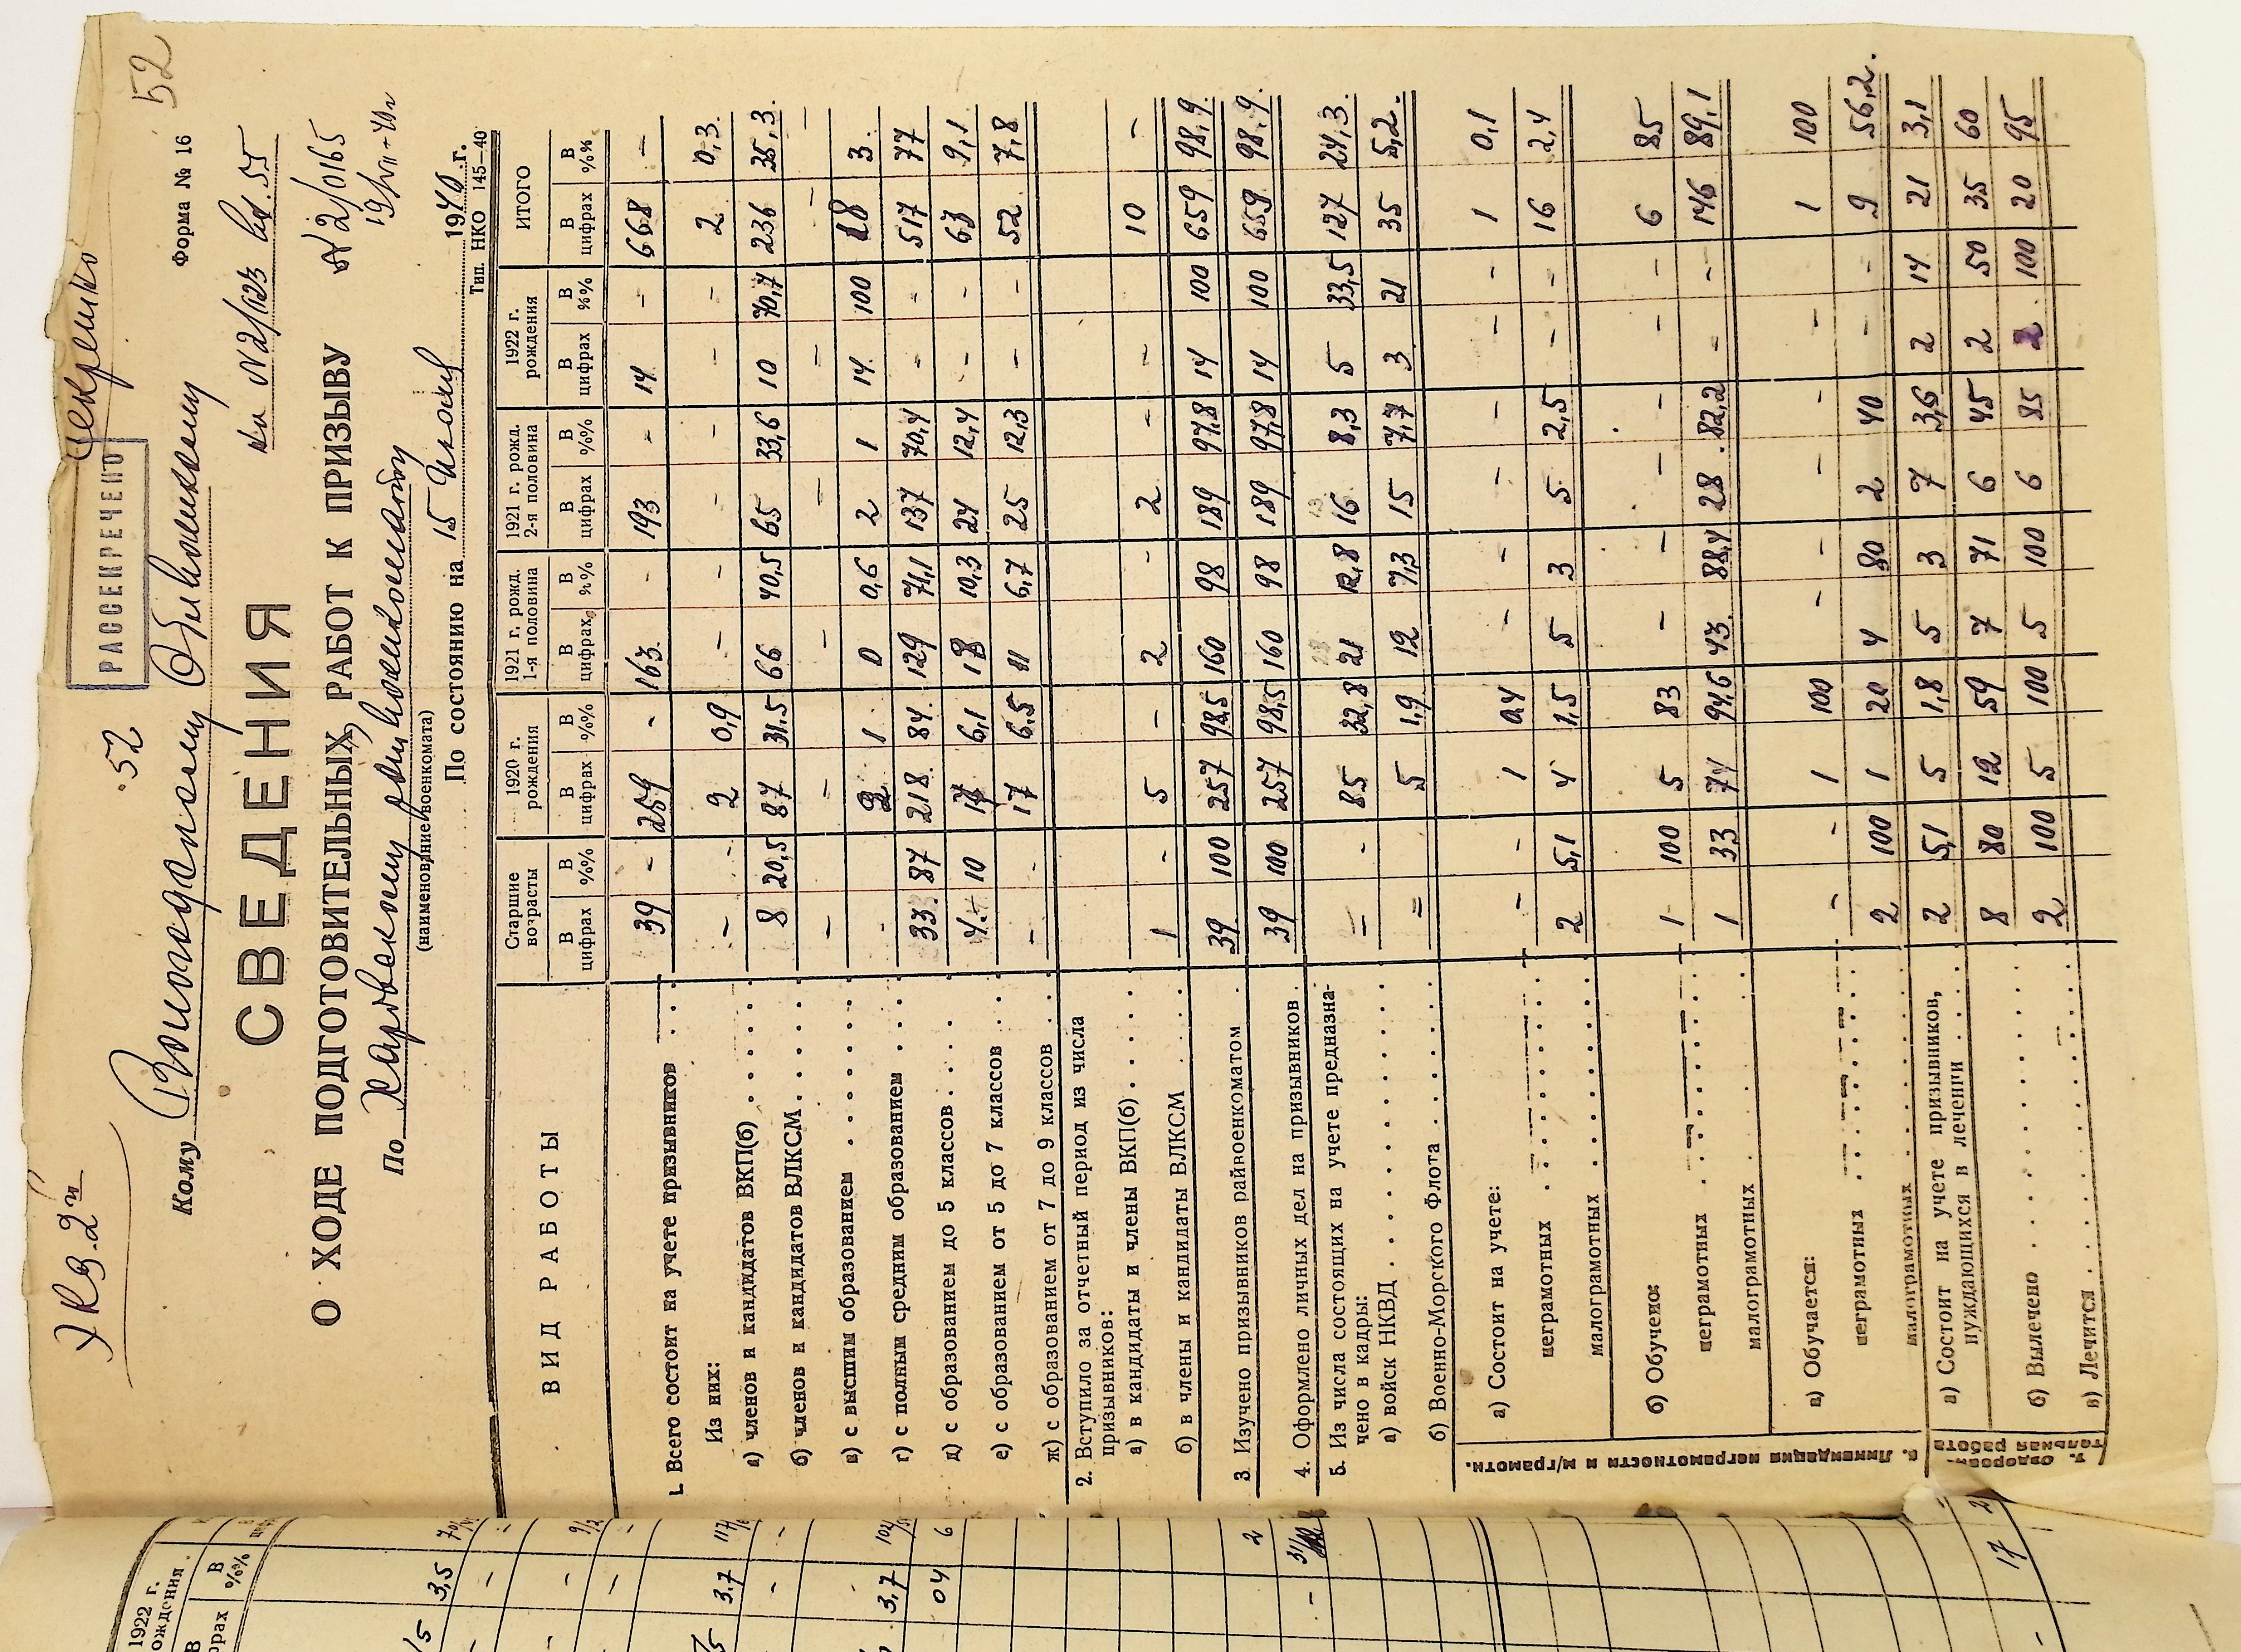 Секретно
РАССЕКРЕЧЕНО
52
52
Кому Вологодскому Облвоенкому
Форма № 16
на №2/023
СВЕДЕНИЯ
О ХОДЕ ПОДГОТОВИТЕЛЬНЫХ РАБОТ К ПРИЗЫВУ
№2/0165
По Харовскому райвоенкомату
(наименование военкомата)
По состоянию на 15 Июля 1940 г.
Тип. НКО 145—40
ВИД РАБОТЫ | Старшие возрасты | 1920 г. рождения | 1921 г. рожд. 1-я половина | 1921 г. рожд. 2-я половина | 1922 г. рождения | ИТОГО
В цифрах | В %% | В цифрах | В %% | В цифрах | В %% | В цифрах | В %% | В цифрах | В %% | В цифрах | В %%
1. Всего состоит на учете призывников . . . 39 – 259 – 163 – 193 – 14 – 668 –
Из них:
а) членов и кандидатов ВКП(б) . . . . . – – 2 0,9 – – – – – – 2 0,3
б) членов и кандидатов ВЛКСМ . . . . . 8 20,5 87 31,5 66 40,5 65 33,6 10 70,7 236 35,3
в) с высшим образованием . . . . . . . – – – – –
г) с полным средним образованием . . . – 2 1 0 0,6 2 1 14 100 18 3
д) с образованием до 5 классов . . . . 33 87 218 84 129 71,1 137 70,4 – – 517 77
е) с образованием от 5 до 7 классов . . . 4 10 17 6,1 18 10,3 24 12,4 – – 63 9,1
ж) с образованием от 7 до 9 классов . . – 17 6,5 11 6,7 25 12,3 – – 52 7,8
2. Вступило за отчетный период из числа
призывников:
а) в кандидаты и члены ВКП(б) . . . . .
б) в члены и кандидаты ВЛКСМ . . . . 1 – 5 – 2 – 2 – – 10 –
3. Изучено призывников райвоенкоматом . 39 100 257 98,5 160 98 189 97,8 14 100 659 98,9
4. Оформлено личных дел на призывников . 39 100 257 98,5 160 98 189 97,8 14 100 659 98,9
5. Из числа состоящих на учете предназна-
чено в кадры:
а) войск НКВД . . . . . . . . . . – – 85 32,8 21 12,8 16 8,3 5 33,5 127 24,3
б) Военно-Морского Флота . . . . . . – 5 1,9 12 7,3 15 7,7 3 21 35 5,2
6. Ликвидация неграмотности и м/грамотн.
а) Состоит на учете:
неграмотных . . . . . . – – 1 0,4 – – – – – – 1 0,1
малограмотных . . . . . . 2 5,1 4 1,5 5 3 5 2,5 – – 16 2,4
б) Обучено:
неграмотных . . . . . . 1 100 5 83 – – – – – – 6 85
малограмотных . . . . . . 1 33 74 94,6 43 88,4 28 82,2 – – 146 89,1
в) Обучается:
неграмотных . . . . . . – – 1 100 – – – – – 1 100
малограмотных . . . . . . 2 100 1 20 4 80 2 40 – – 9 56,2
7. Оздоровительная работа
а) Состоит на учете призывников,
нуждающихся в лечении . . . . 2 5,1 5 1,8 5 3 7 3,6 2 14 21 3,1
б) Вылечено . . . . . . 8 80 12 59 7 71 6 45 2 50 35 60
в) Лечится . . . . . . 2 100 5 100 5 100 6 85 2 100 20 95
1922 г.
В %%
3,5
3,7
3,7
04
6
2
17